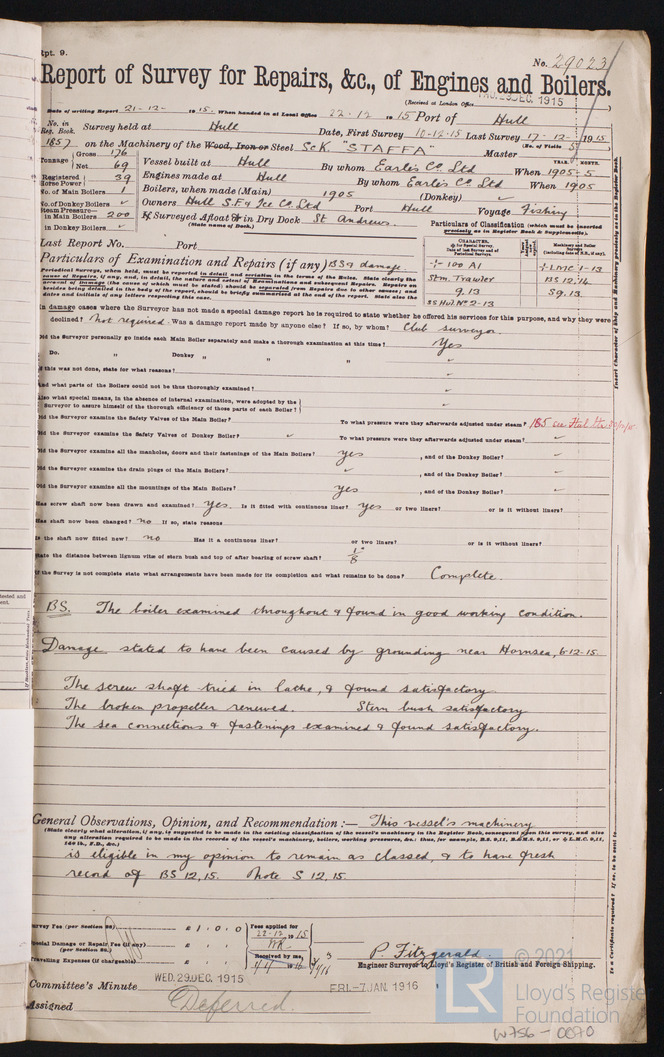 Rpt. 9.
No. 29023
Report of Survey for Repairs, &c., of Engines and Boilers.
(Received at London Office WED. 29 DEC. 1915
Date of writing Report 21-12- 1915. When handed in at Local Office 22-12 1915 Port of Hull
No. in Reg. Book. Survey held at Hull Date, First Survey 10-12-15 Last Survey 17-12- 1915
(No. of Visits 5)
1857 on the Machinery of the Wood, Iron or Steel ScK "STAFFA" Master
Tonnage Gross 176 Net 69
Vessel built at Hull By whom Earle's Co. Ltd When 1905-5
YEAR. MONTH.
Registered Horse Power 39
Engines made at Hull By whom Earle's Co. Ltd When 1905
No. of Main Boilers 1
Boilers, when made (Main) 1905 (Donkey) ✓
No. of Donkey Boilers ✓
Owners Hull S.F. & Ice Co. Ltd Port Hull Voyage Fishing
Steam Pressure— in Main Boilers 200
in Donkey Boilers ✓
If Surveyed Afloat or in Dry Dock St Andrews.
(State name of Dock.)
Particulars of Classification (which must be inserted precisely as in Register Book & Supplements).
Last Report No. Port
Particulars of Examination and Repairs (if any) BS & damage.
CHARACTER.
+ 100 A1
Stm. Trawler
9.13
SS Hul. No 2-13
+ LMC 1-13
BS 12,14
S 9.13.
In damage cases where the Surveyor has not made a special damage report he is required to state whether he offered his services for this purpose, and why they were
declined? Not required. Was a damage report made by anyone else? If so, by whom? Club surveyor.
Did the Surveyor personally go inside each Main Boiler separately and make a thorough examination at this time? Yes
Do. " Donkey " " " ✓
If this was not done, state for what reasons? ✓
And what parts of the Boilers could not be thus thoroughly examined? ✓
Also what special means, in the absence of internal examination, were adopted by the Surveyor to assure himself of the thorough efficiency of those parts of each Boiler? ✓
Did the Surveyor examine the Safety Valves of the Main Boiler? To what pressure were they afterwards adjusted under steam? 185
Did the Surveyor examine the Safety Valves of Donkey Boiler? ✓ To what pressure were they afterwards adjusted under steam? ✓
Did the Surveyor examine all the manholes, doors and their fastenings of the Main Boilers? yes , and of the Donkey Boiler? ✓
Did the Surveyor examine the drain plugs of the Main Boilers? ✓ , and of the Donkey Boiler? ✓
Did the Surveyor examine all the mountings of the Main Boilers? yes , and of the Donkey Boiler? ✓
Has screw shaft now been drawn and examined? Yes. Is it fitted with continuous liner? yes or two liners? or is it without liners?
Has shaft now been changed? no If so, state reasons
Is the shaft now fitted new? no Has it a continuous liner? or two liners? or is it without liners?
State the distance between lignum vitæ of stern bush and top of after bearing of screw shaft? 1/8"
If the Survey is not complete state what arrangements have been made for its completion and what remains to be done? Complete.
BS. The boiler examined throughout & found in good working condition.
Damage stated to have been caused by grounding near Hornsea, 6-12-15.
The screw shaft tried in lathe, & found satisfactory.
The broken propeller renewed. Stern bush satisfactory
The sea connections & fastenings examined & found satisfactory.
General Observations, Opinion, and Recommendation:— This vessel's machinery
(State clearly what alteration, if any, is suggested to be made in the existing classification of the vessel's machinery in the Register Book, consequent upon this survey, and also
is eligible in my opinion to remain as classed, & to have fresh
record of BS 12,15. Note S 12,15.
Survey Fee (per Section 28) £ 1 . 0 . 0
Fees applied for 22-12 1915
Special Damage or Repair Fee (if any) (per Section 28.) £
Received by me,
Travelling Expenses (if chargeable) £
P. Fitzgerald.
Engineer Surveyor to Lloyd's Register of British and Foreign Shipping.
Committee's Minute WED. 29 DEC. 1915 FRI. - 7 JAN. 1916
Assigned Deferred.
© 2021
LR Lloyd's Register
Foundation
W756-0070